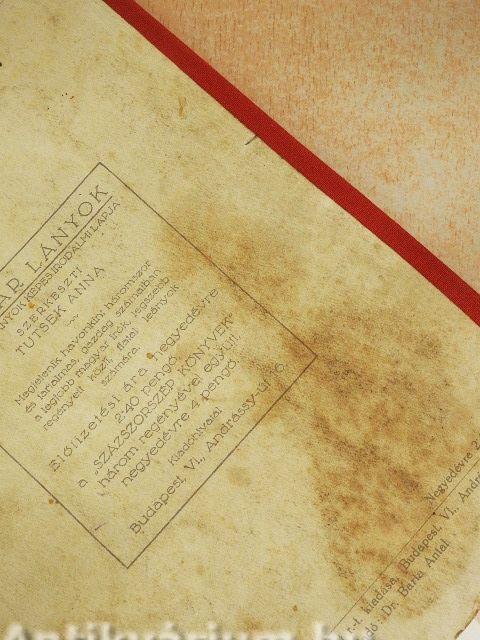 AR LÁNYOK
NYOK KÉPES IRODALMI LAPJA
SZERKESZTI
TUTSEK ANNA
Megjelenik havonkint háromszor
és tartalmas, gazdag számaiban
a legjobb magyar írók legszebb
regényeit közli fiatal leányok
számára.
Előfizetési ára negyedévre
2·40 pengő
a "SZÁZSZORSZÉP KÖNYVEK"
három regényével együtt
negyedévre 4 pengő.
Kiadóhivatal
Budapest, VI., Andrássy-út 16.
Negyedévre 2
r.-t. kiadása, Budapest, VI., Andrá
dó: Dr. Barta Antal
Antikvárium.hu